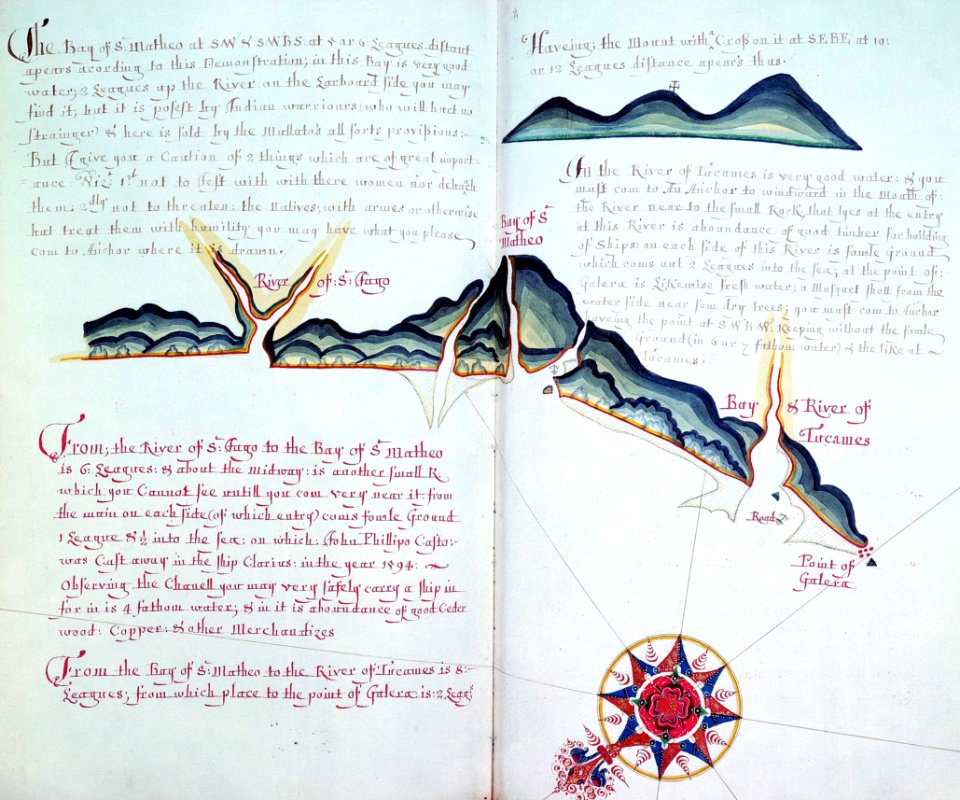 The Bay of St Matheo at SW & SWBS: at 5 or 6 Leagues distant
apears acording to this Demonstration; in this Bay is very good
water; 2 Leagues up the River on the Larboard side you may
find it; but it is posest by Indian warriours (who will hurt no
strainger) & here is sold by the Mallato's all sorts provisions:-
But I give you a Caution of 2 things which are of great import-
-ance: Viz: 1st not to Jest with with there women nor debach
them: 2dly not to threaten: the Natives, with armes or otherwise
but treat them with humility you may have what you please
Com to Anchor where it is drawn.
River of: St: Jago
From; the River of St: Jago to the Bay of St Matheo
is 6: Leagues: & about the midway: is another small R
which you Cannot see untill you com very near it: from
the main on each side (of which entry) coms foule Ground
1 League & ½ into the sea: on which: John Phillipo Casto:-
was Cast away in the ship Clarius: in the year 1594: ~
Observing the Chanell you may very safely carry a ship in
for in is 4 fathom water; & in it is aboundance of good Ceder
wood: Copper: & other Merchandizes
From the Bay of St: Matheo to the River of: Tucames is 8:
Leagues; from which place to the point of Galera is: 2: Leags
Haveing; the Mount with a Cross on it at SEBE; at 10:
or 12 Leagues distance apears thus:
In the River of Tucames is very good water: & you
must com to An Anchor to windward in the Mouth of:
the River near to the small Rock, that lyes at the entry
at this River is aboundance of good timber for building
of Ships: on each side of this River is foule Ground
which coms out 2 Leagues into the sea; at the point of;
Galera is Likewise fresh water; a Musquet shott from the
water side near som dry trees; you must com to Anchor
haveing the point at SWBW. keeping without the foule
Ground (in 6 or 7 fathom water) & the like at ~
Tucames.
Bay of St
Matheo
Bay & River of
Tucames
Road
Point of
Galera